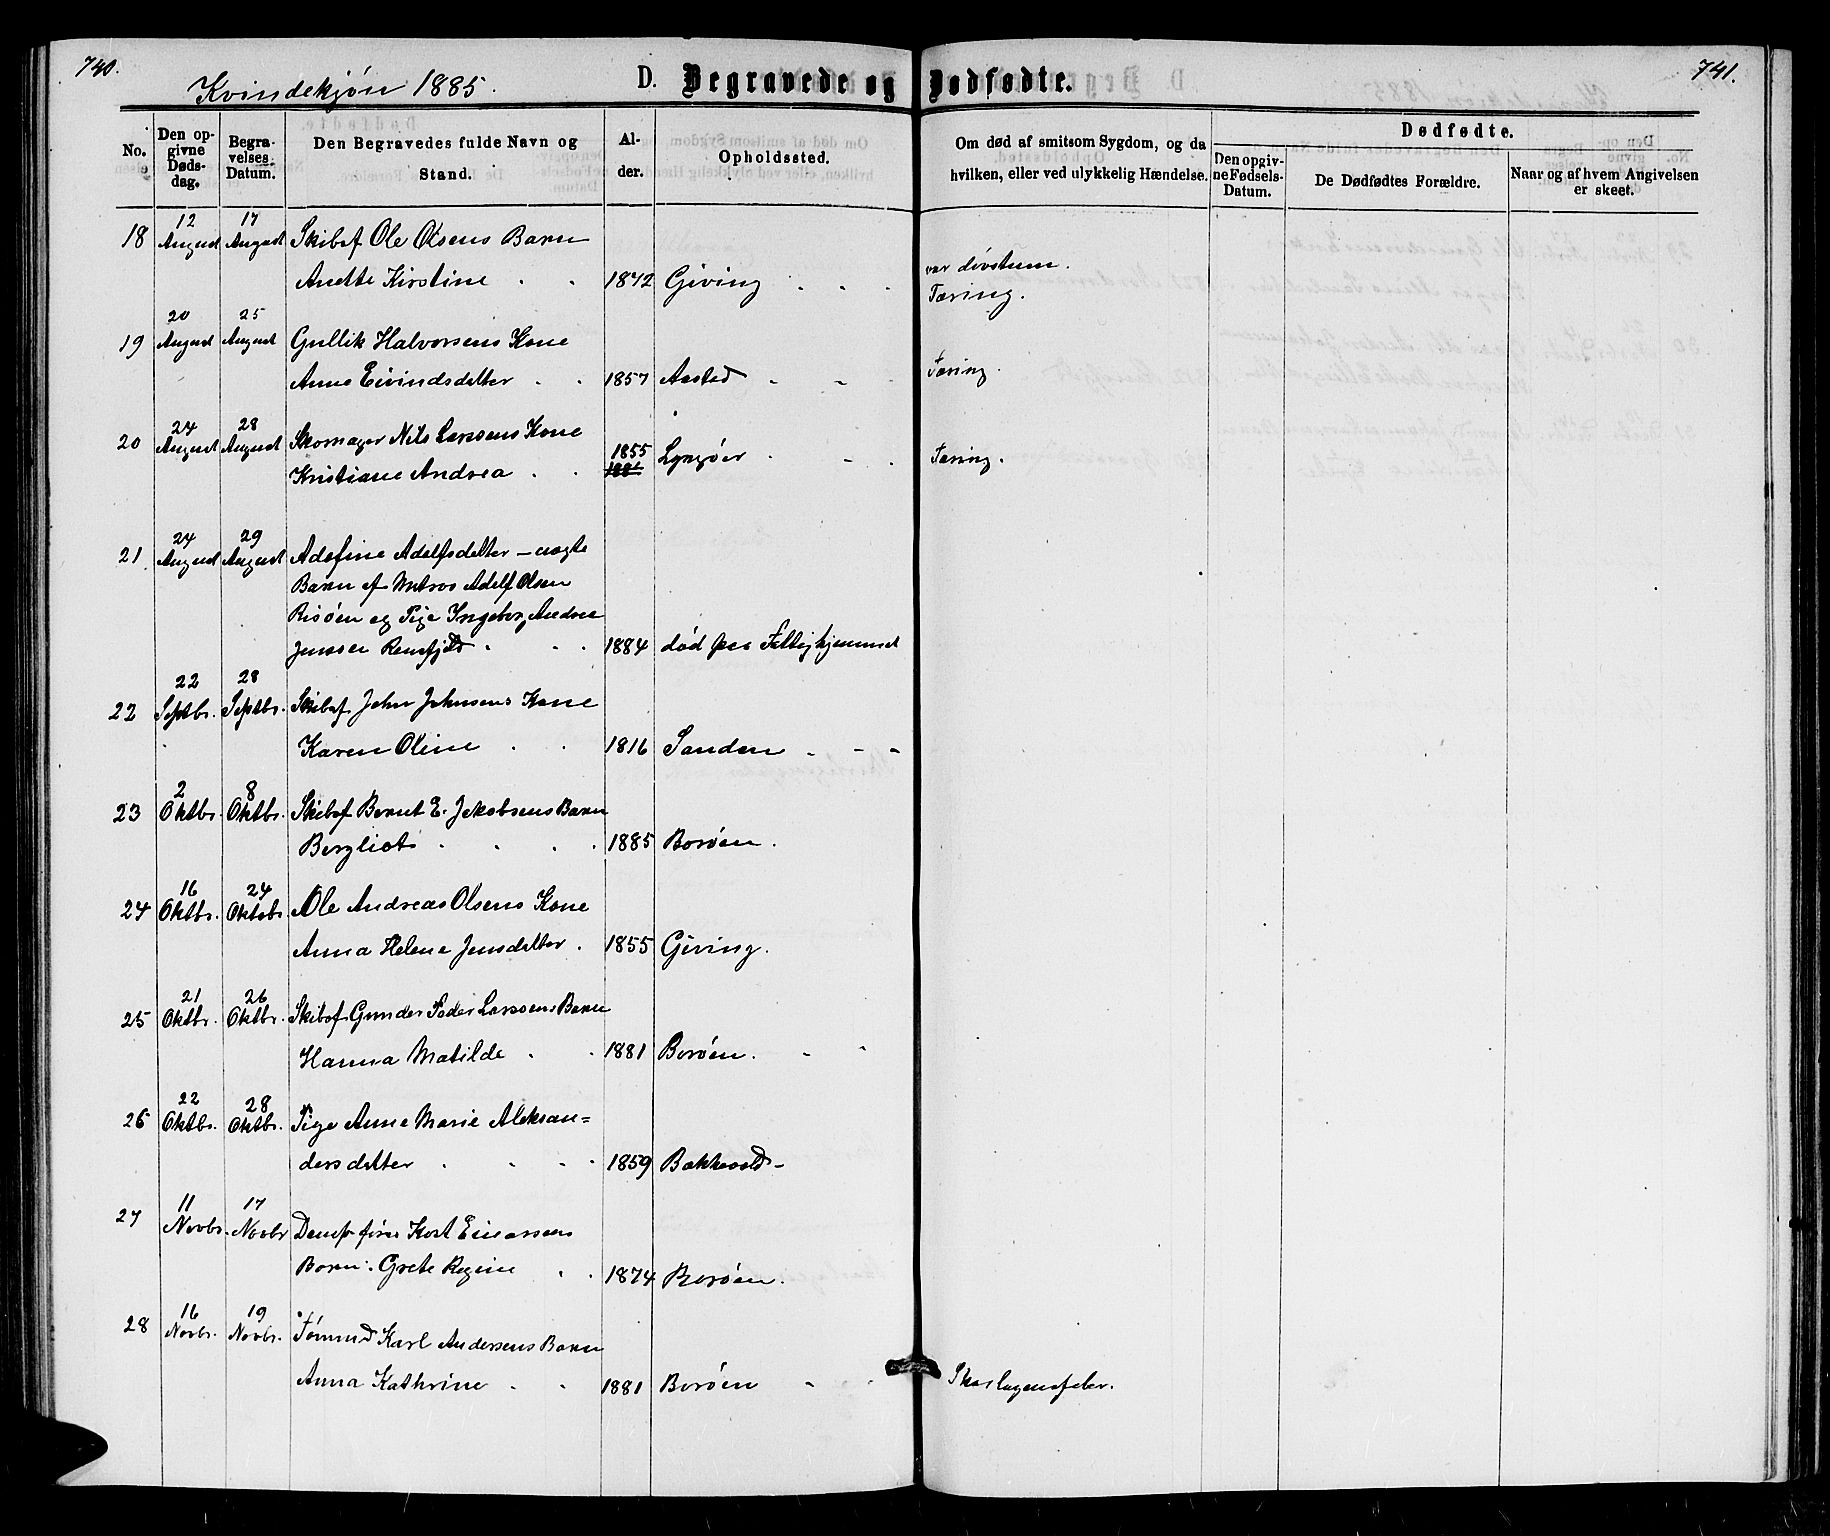 740.
741.
Kvindekjøn 1885.
D. Begravede og Dødfødte.
No.
Den op-
givne
Døds-
dag.
Begra-
velses-
Datum.
Den Begravedes fulde Navn og
Stand.
Al-
der.
Opholdssted.
Om død af smitsom Sygdom, og da
hvilken, eller ved ulykkelig Hændelse.
Dødfødte.
Den opgiv-
ne Fødsels-
Datum.
De Dødfødtes Forældre.
Naar og af hvem Angivelsen
er skeet.
12 17
18 August August Skibsf Ole Olsens Barn
var døvstum.
Anette Kirstine 1872 Giving Tæring.
20 25
19 August August Gullik Halvorsens Kone
Anne Eivindsdatter 1857 Aasted Tæring.
24 28
20 August August Skomager Nils Larsens Kone
1855
Kristiane Andrea 1881 Lyngøer Tæring.
24 29
21. August August Adofine Adolfsdatter – uægte
Barn af Matros Adolf Olsen
Risøen og Pige Ingeborg Andrea
Jenssen 1884 død paa Fattighjemmet
22 28
22 Septbr. Septbr. Skibsf. John Johnsens Kone
Karen Oline 1816 Sanden
2 8
23 Oktbr. Oktbr. Skibsf Bernt E. Jakobsens Barn
Bergliot 1885 Borøen.
16 24
24 Oktbr. Oktobr Ole Andreas Olsens Kone
Anna Helene Jensdatter. 1855 Giving.
21 26
25 Oktbr. Oktbr. Skibsf. Gunder Peder Larsens Barn
Hanna Matilde 1881 Borøen.
22 28
26 Oktbr. Oktbr. Pige Anne Marie Aleksan=
dersdatter 1859 Bakkevold
11 17
27 Novbr. Novbr Kort Einersens
Barn: Grete Regine 1874 Borøen.
16 19
28 Novbr. Novbr. Tømmd Karl Andersens Barn
Anna Kathrine 1881 Borøen Skarlagensfeber.